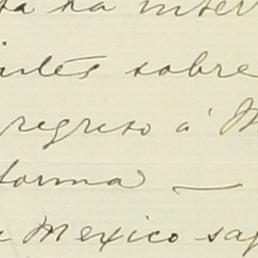 ha inter
sobre
regreso á M
forma —
Mexico sa